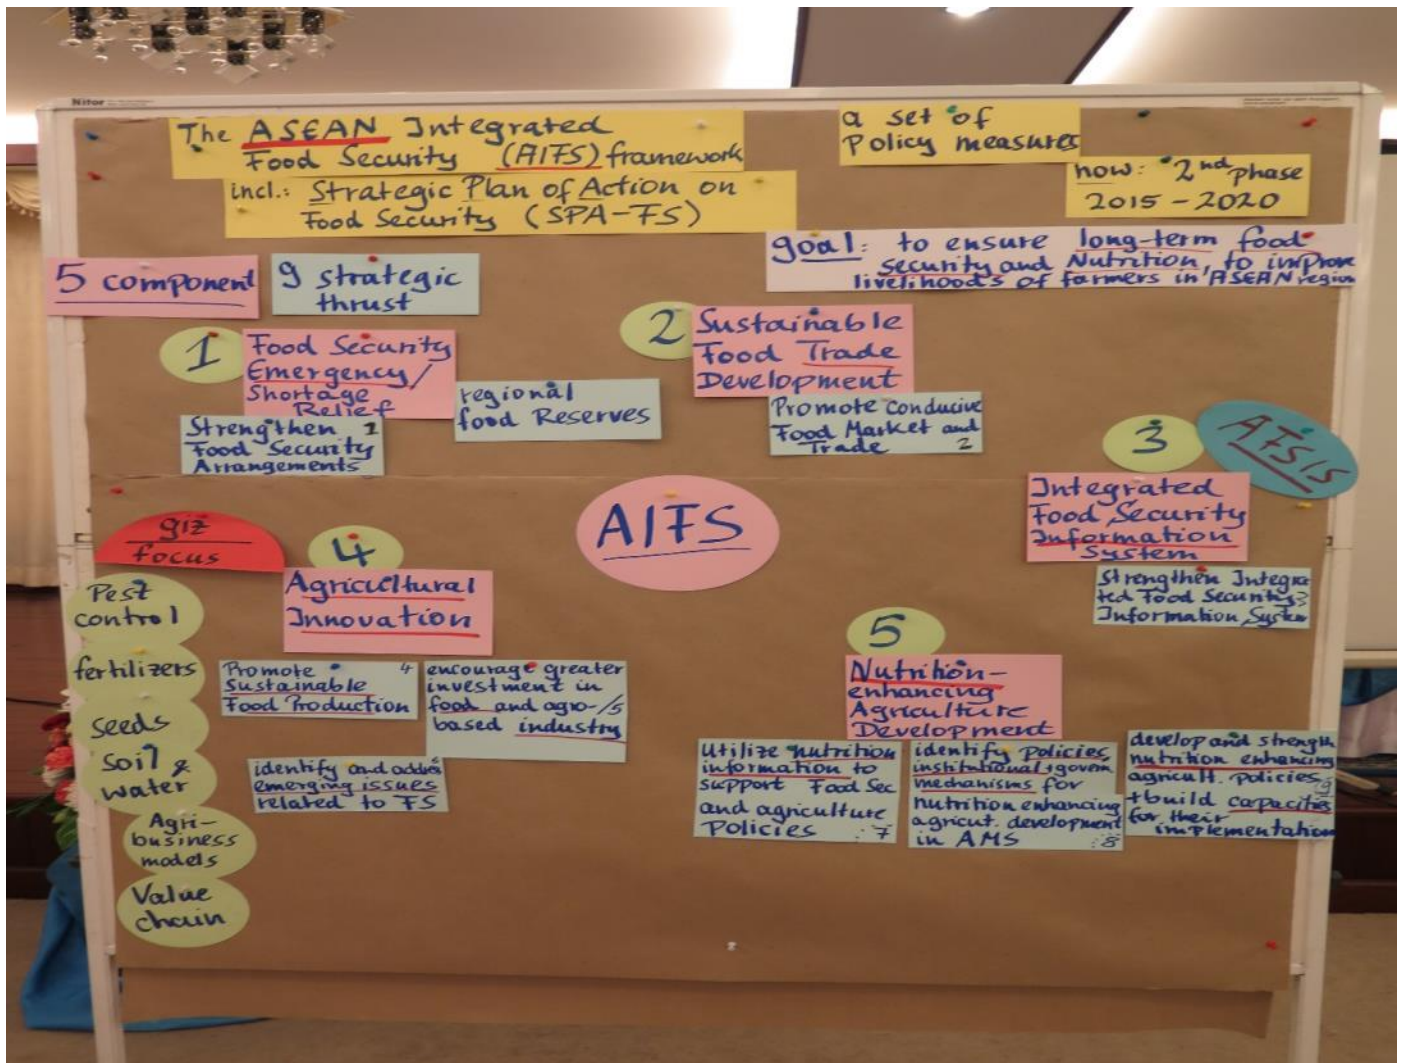 Nitor
The ASEAN Integrated
Food Security (AIFS) framework
incl.: Strategic Plan of Action on
Food Security (SPA-FS)
a set of
Policy measures
now: 2nd phase
2015-2020
goal: to ensure long-term food
security and Nutrition, to improve
livelihoods of farmers in ASEAN region
5 component
9 strategic
thrust
1
Food Security
Emergency/
Shortage
Relief
Strengthen 1
Food Security
Arrangements
regional
food Reserves
2
Sustainable
Food Trade
Development
Promote conducive
Food Market and
Trade 2
3
AFSIS
Integrated
Food Security
Information
System
Strengthen Integra
ted Food Security 3
Information System
AIFS
giz
focus
Pest
control
fertilizers
seeds
Soil &
water
Agri-
business
models
Value
chain
4
Agricultural
Innovation
Promote 4
Sustainable
Food Production
encourage greater
investment in
food and agro-/5
based industry
identify and address
emerging issues
related to FS
5
Nutrition-
enhancing
Agriculture
Development
Utilize nutrition
information to
support Food Sec
and agriculture
Policies :7
identify policies,
institutional, govern
mechanisms for
nutrition enhancing
agricut. development
in AMS :8
develop and strength
nutrition enhancing
agricult. policies :9
+build capacities
for their
implementation